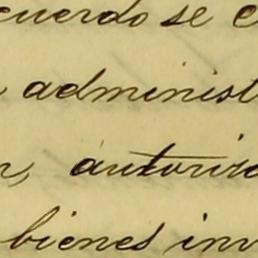 cuerdo se e
administ
n, autoriz
bienes inm